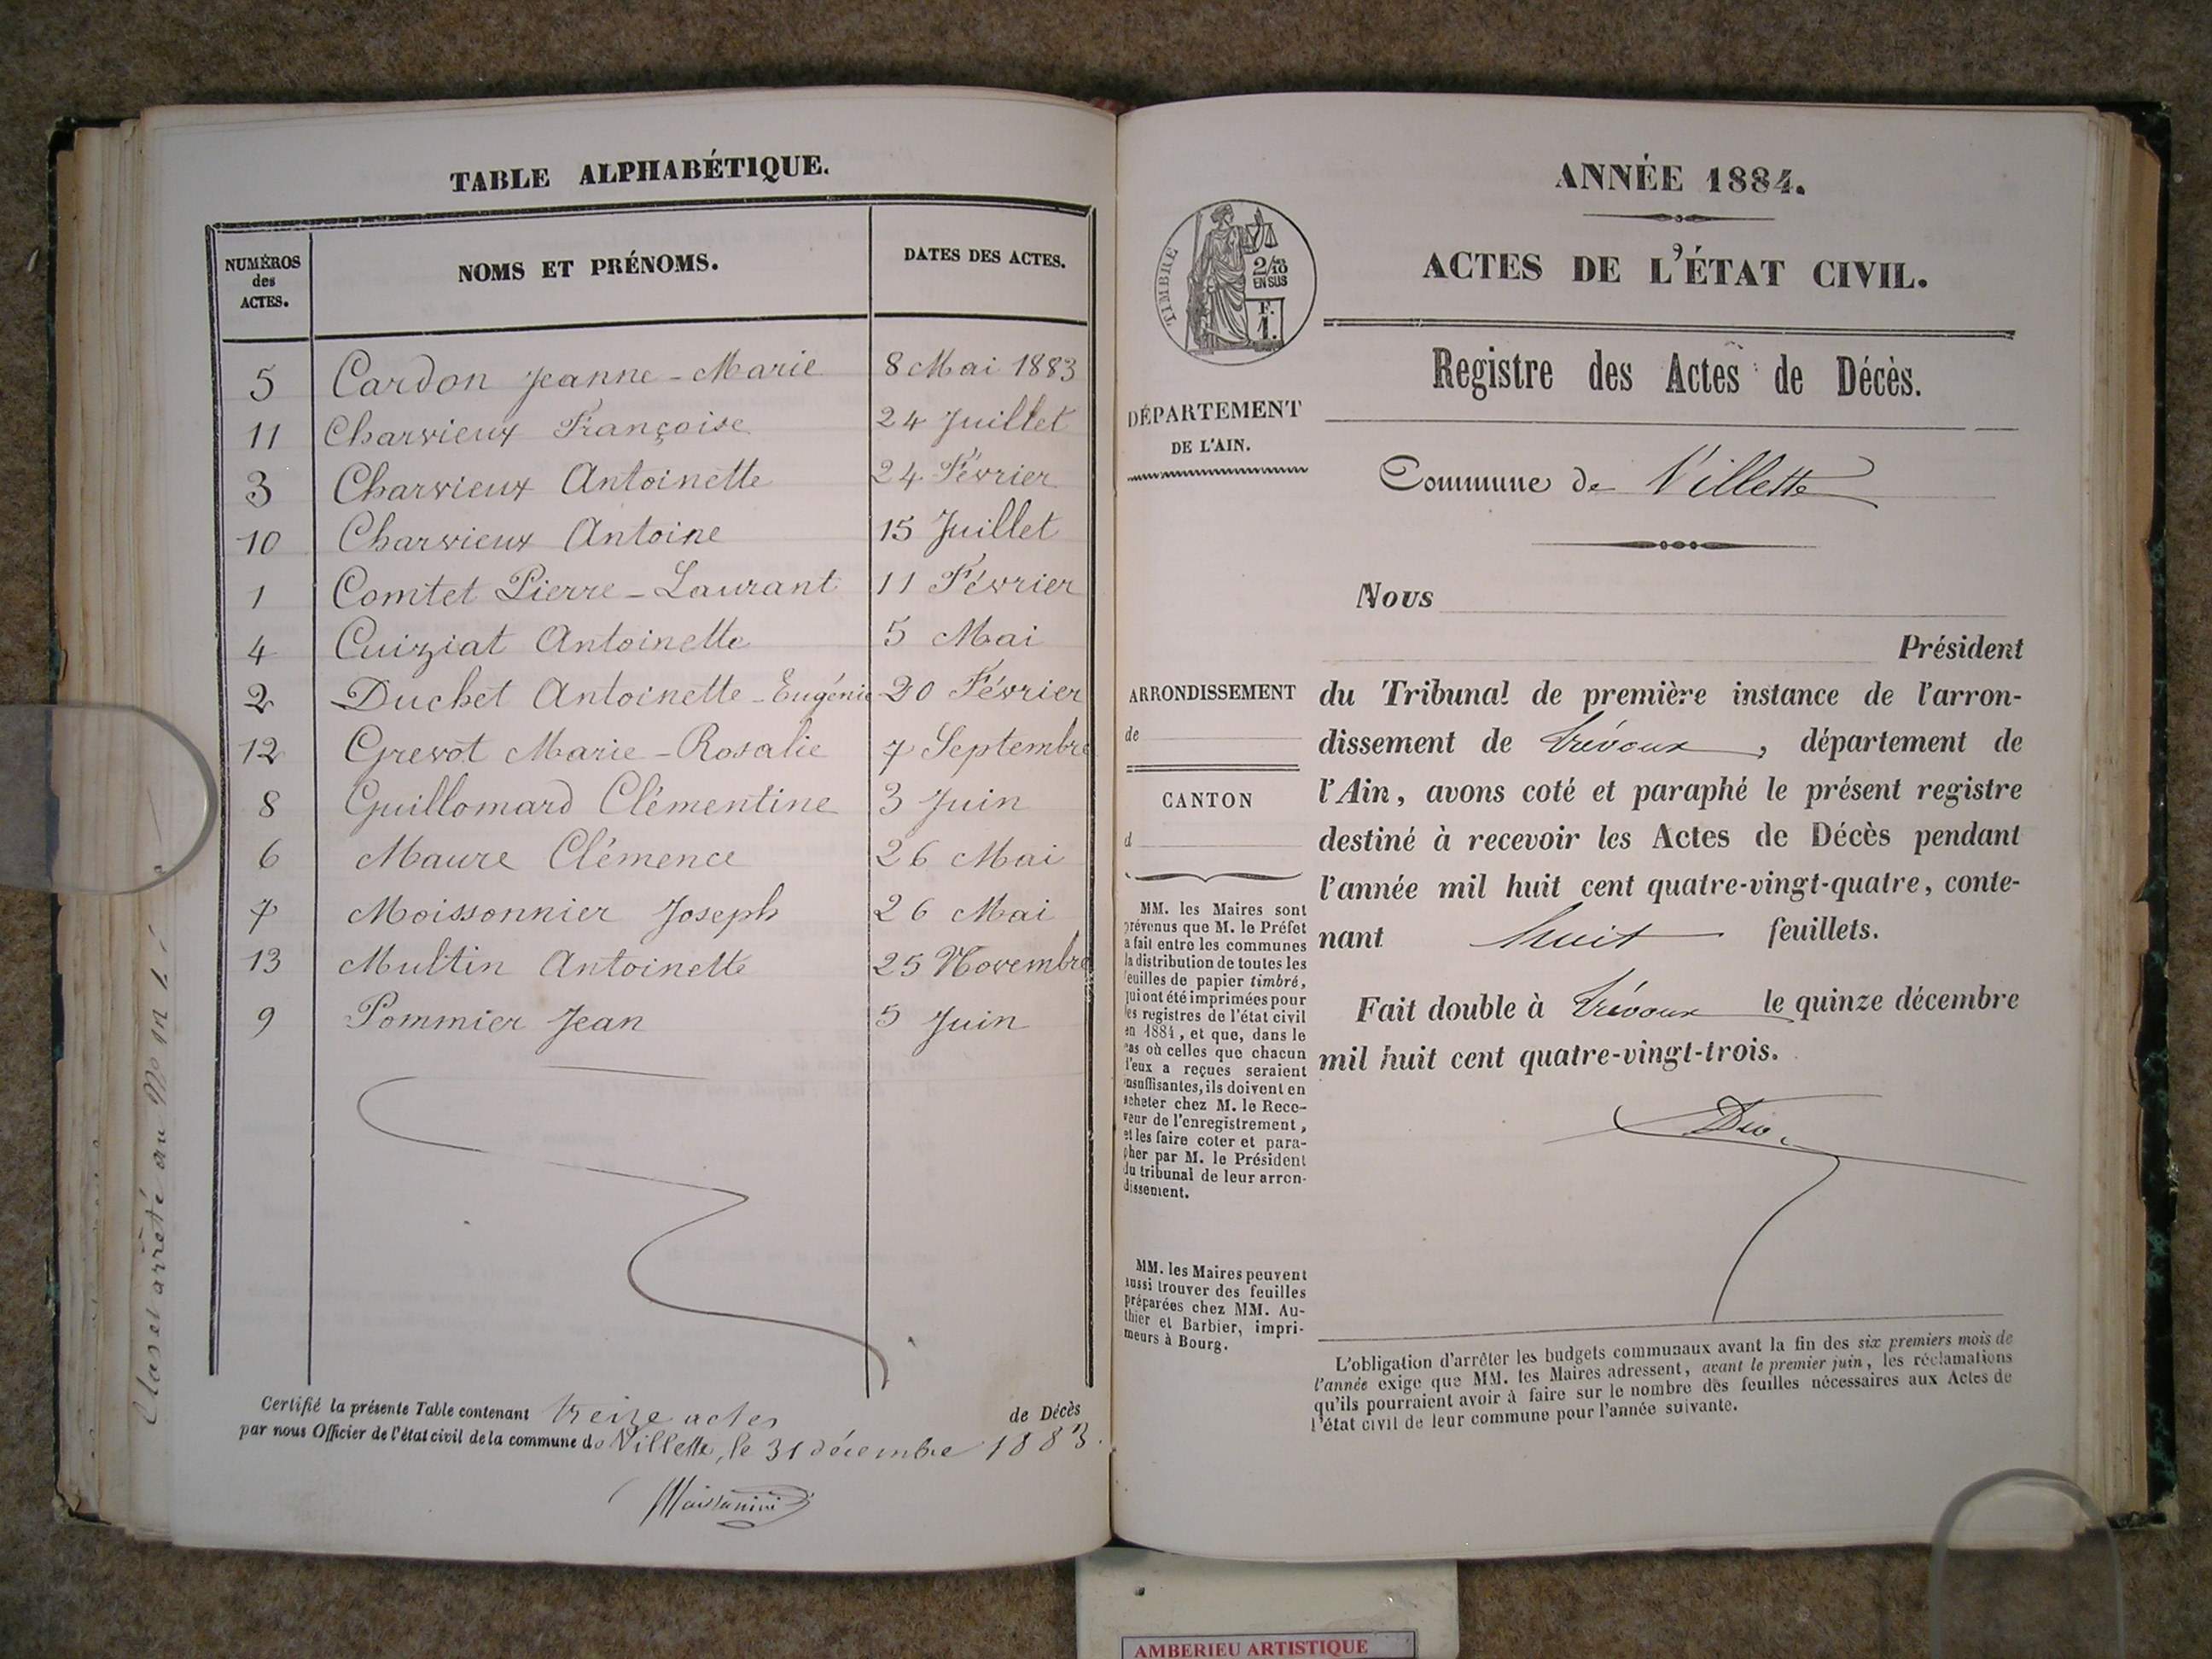 TABLE ALPHABÉTIQUE.
NUMÉROS des ACTES. NOMS ET PRÉNOMS. DATES DES ACTES.
5 Cardon Jeanne-Marie 8 Mai 1883
11 Charvieux Françoise 24 Juillet
3 Charvieux Antoinette 24 Février
10 Charvieux Antoine 15 Juillet
1 Comtet Pierre-Laurant 11 Février
4 Cuiziat Antoinette 5 Mai
2 Duchet Antoinette-Eugénie 20 Février
12 Grevot Marie-Rosalie 7 Septembre
8 Guillomard Clémentine 3 Juin
6 Maure Clémence 26 Mai
7 Moissonnier Joseph 26 Mai
13 Multin Antoinette 25 Novembre
9 Pommier Jean 5 Juin
Certifié la présente Table contenant treize actes de Décès
par nous Officier de l'état civil de la commune de Villette, le 31 décembre 1883.
Clos et arrêté
ANNÉE 1884.
ACTES DE L'ÉTAT CIVIL.
TIMBRE
2/10
EN SUS
F.
1.
Registre des Actes de Décès.
DÉPARTEMENT
DE L'AIN.
Commune de Villette
Nous
Président
du Tribunal de première instance de l'arron-
dissement de Trévoux, département de
l'Ain, avons coté et paraphé le présent registre
destiné à recevoir les Actes de Décès pendant
l'année mil huit cent quatre-vingt-quatre, conte-
nant huit feuillets.
Fait double à Trévoux le quinze décembre
mil huit cent quatre-vingt-trois.
ARRONDISSEMENT
de
CANTON
d
MM. les Maires sont
prévenus que M. le Préfet
a fait entre les communes
la distribution de toutes les
feuilles de papier timbré,
qui ont été imprimées pour
les registres de l'état civil
en 1884, et que, dans le
cas où celles que chacun
d'eux a reçues seraient
insuffisantes, ils doivent en
acheter chez M. le Rece-
veur de l'enregistrement,
et les faire coter et para-
pher par M. le Président
du tribunal de leur arron-
dissement.
MM. les Maires peuvent
aussi trouver des feuilles
préparées chez MM. Au-
thier et Barbier, impri-
meurs à Bourg.
L'obligation d'arrêter les budgets communaux avant la fin des six premiers mois de
l'année exige que MM. les Maires adressent, avant le premier juin, les réclamations
qu'ils pourraient avoir à faire sur le nombre des feuilles nécessaires aux Actes de
l'état civil de leur commune pour l'année suivante.
AMBERIEU ARTISTIQUE